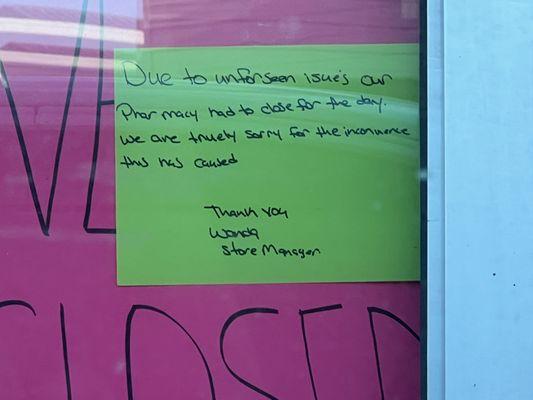 WE
Due to unforseen issue's our
Pharmacy had to close for the day.
we are truely sorry for the inconvience
this has caused
Thank you
Wanda
Store Manager
CLOSED